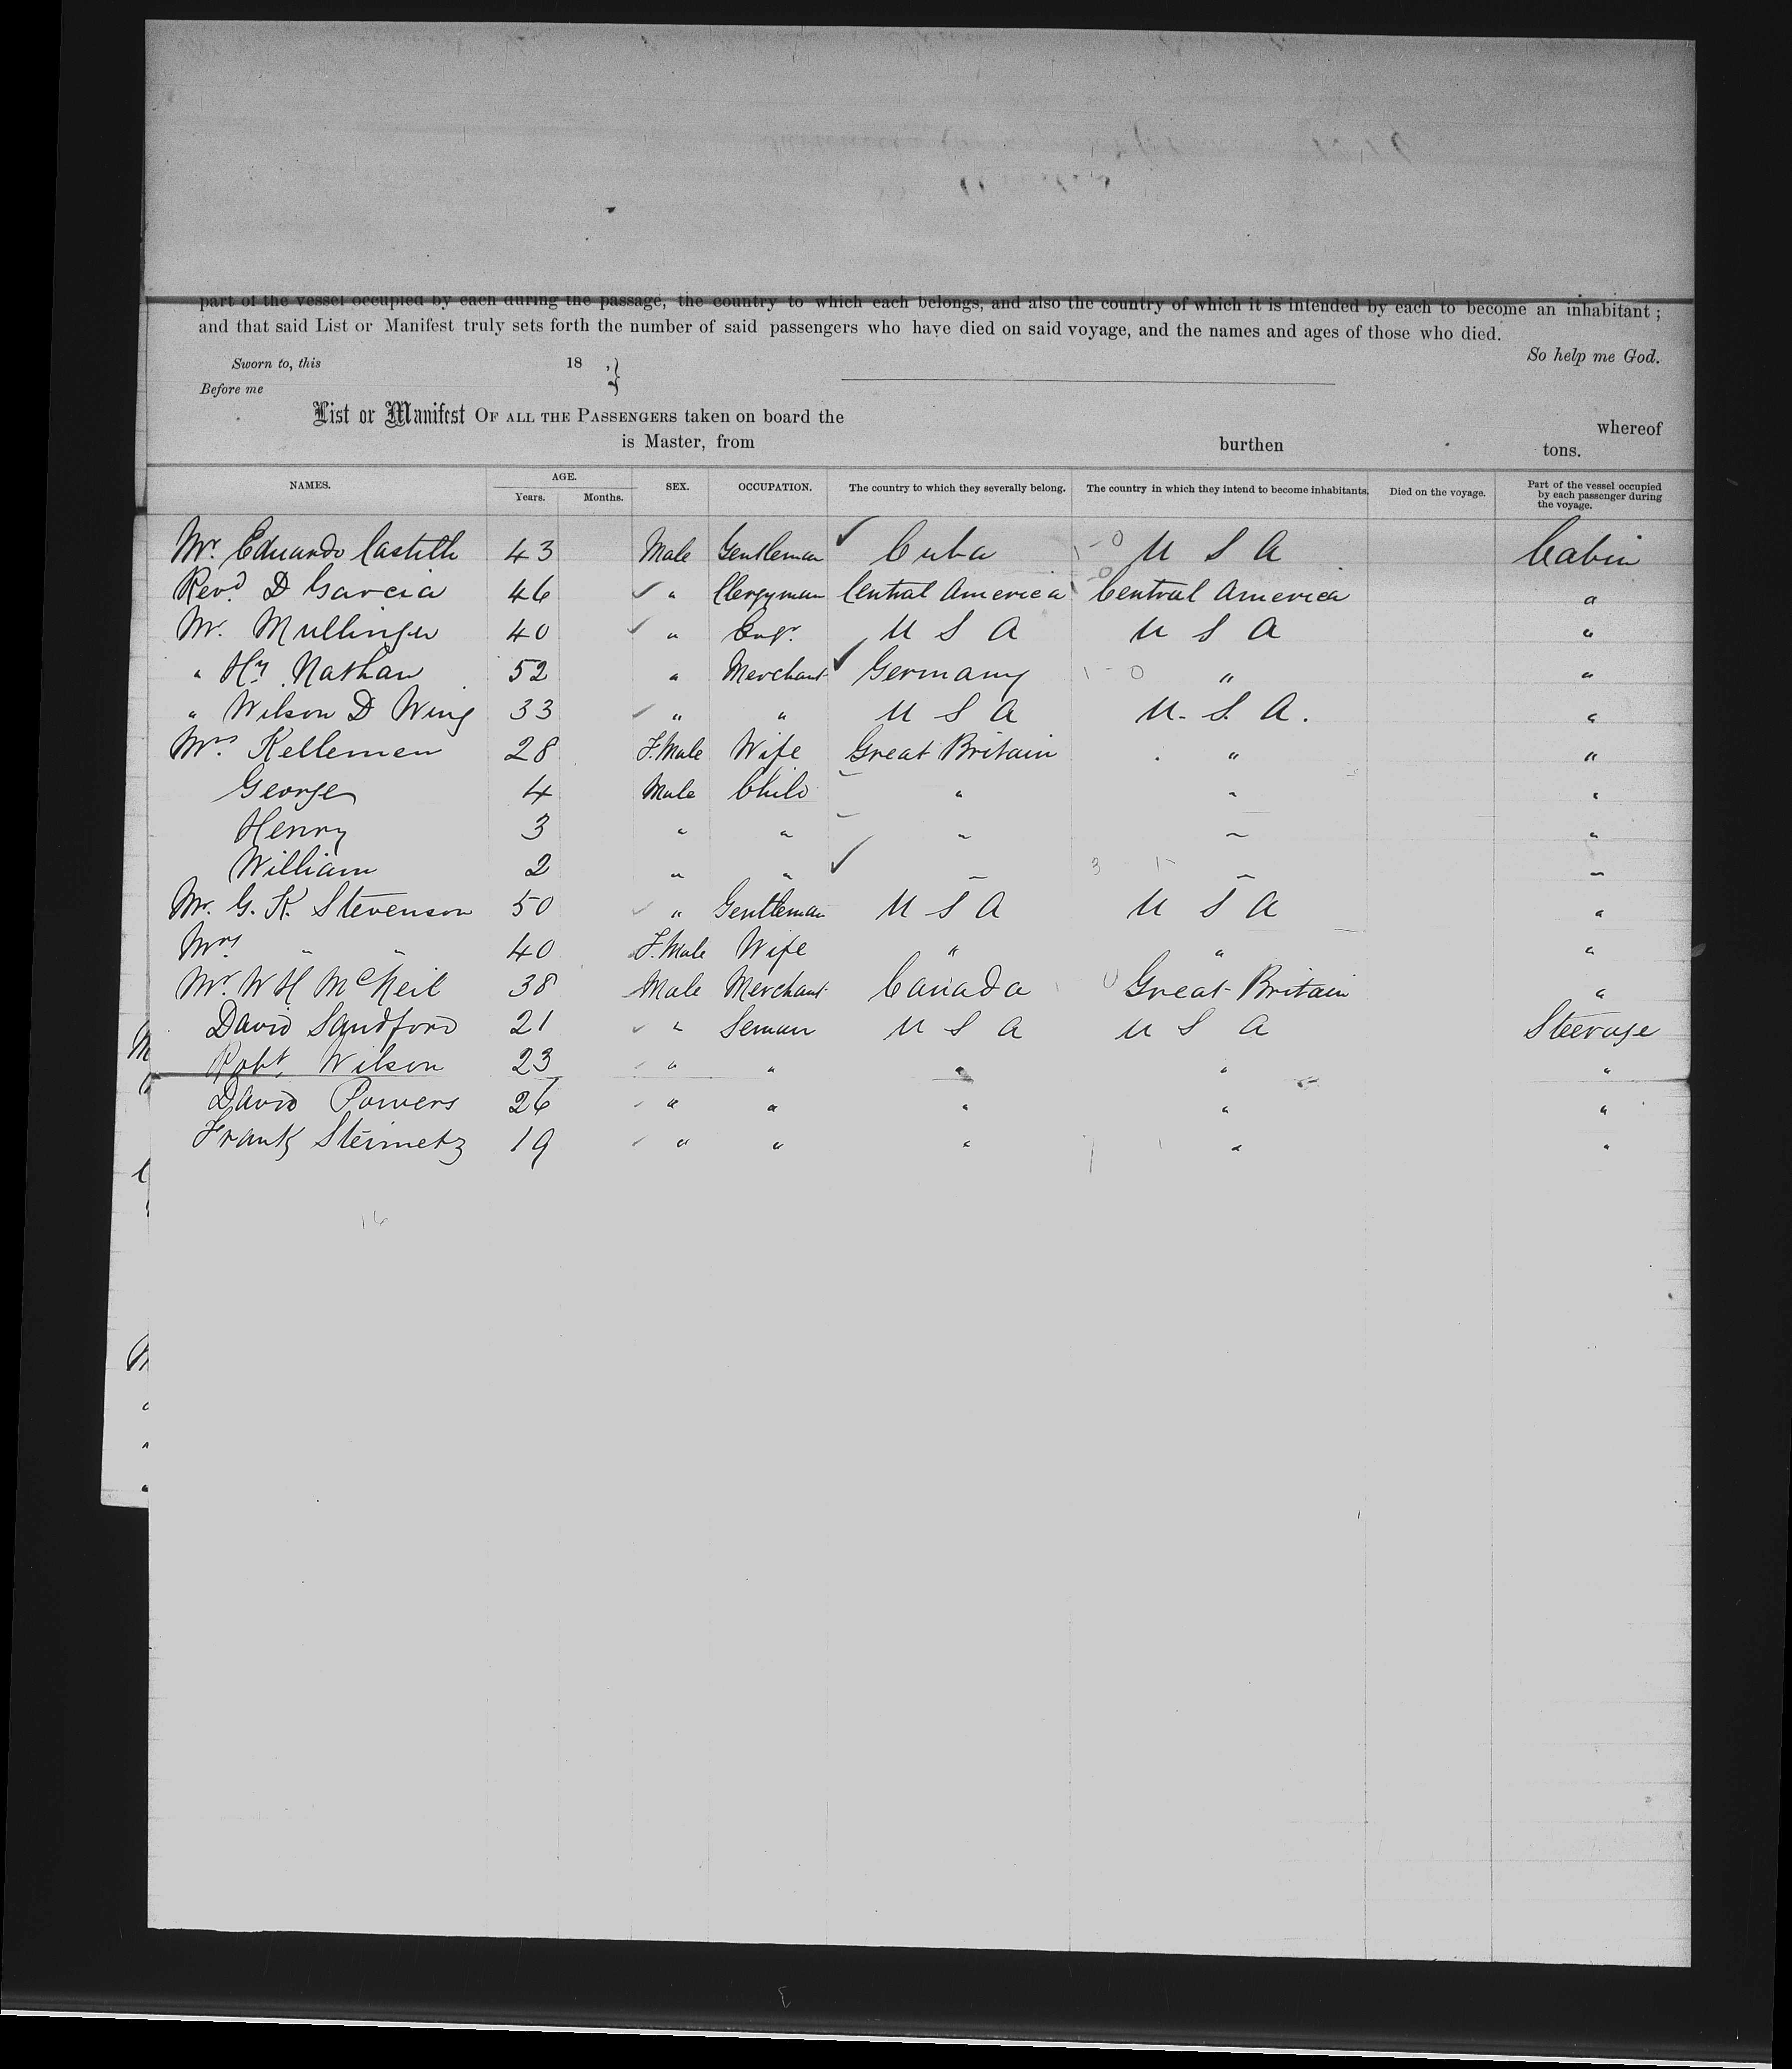 part of the vessel occupied by each during the passage, the country to which each belongs, and also the country of which it is intended by each to become an inhabitant ;
and that said List or Manifest truly sets forth the number of said passengers who have died on said voyage, and the names and ages of those who died.
So help me God.
Sworn to, this 18 , }
Before me
List or Manifest OF ALL THE PASSENGERS taken on board the whereof
is Master, from burthen tons.
NAMES. AGE. Years. Months. SEX. OCCUPATION. The country to which they severally belong. The country in which they intend to become inhabitants. Died on the voyage. Part of the vessel occupied by each passenger during the voyage.
Mr. Eduardo Castillo 43 Male Gentleman Cuba U S A Cabin
Revd. D Garcia 46 " Clergyman Central America Central America "
Mr. Mullinger 40 " Engr. U S A U S A "
" Hy. Nathan 52 " Merchant Germany " "
" Wilson D Wing 33 " " U S A U. S. A. "
Mrs Kellemen 28 F.Male Wife Great Britain " "
George 4 Male Child " " "
Henry 3 " " " " "
William 2 " " " " "
Mr. G. K. Stevenson 50 " Gentleman U S A U S A "
Mrs " " 40 F.Male Wife " " "
Mr. W H McNeil 38 Male Merchant Canada Great Britain "
David Sandford 21 " Seman U S A U S A Steerage
Robt. Wilson 23 " " " " "
David Powers 26 " " " " "
Frank Steimetz 19 " " " " "
16